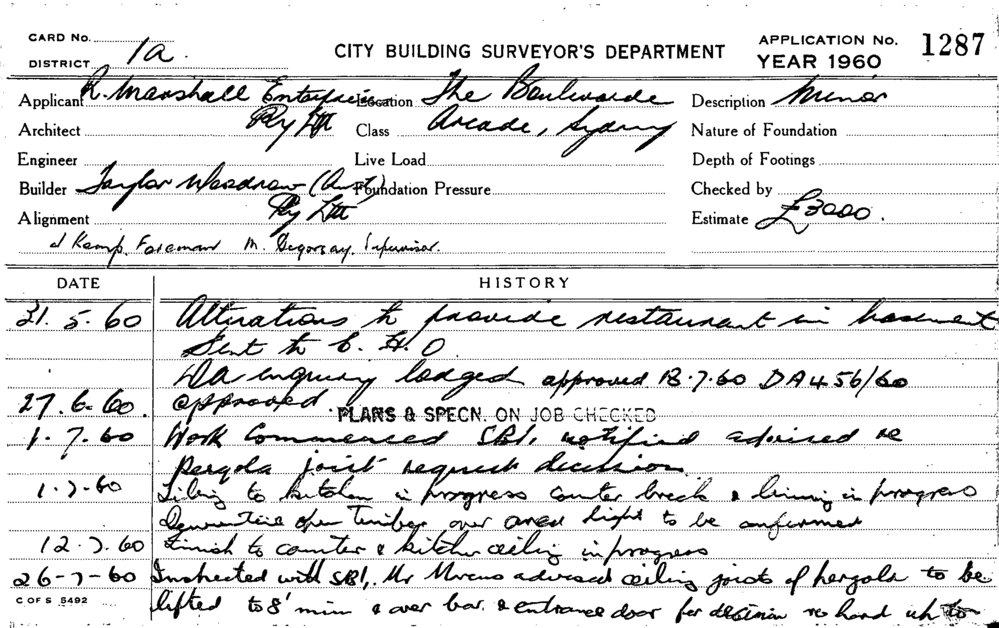 CARD No.
DISTRICT 1a.
CITY BUILDING SURVEYOR'S DEPARTMENT
APPLICATION No. 1287
YEAR 1960
Applicant R. Marshall Enterprises Location The Boulevarde Description Minor
Pty Ltd
Architect Class Arcade, Sydney Nature of Foundation
Engineer Live Load Depth of Footings
Builder Taylor Woodrow (Aust) Foundation Pressure Checked by
Pty Ltd
Alignment Estimate £3000.
J Kemp. Foreman M. Supervisor.
DATE HISTORY
31. 5. 60 Alterations to provide restaurant in basement
Sent to C. H. O
DA enquiry lodged approved 18.7.60 DA 456/60
27. 6. 60. approved
PLANS & SPECN. ON JOB CHECKED
1. 7. 60 Work Commenced SBI, notified advised re
Pergola joist request decision
1.7.60 Tiling to kitchen in progress counter & lining in progress
open Timber over area hight to be confirmed
12.7.60 Finish to counter & kitchen ceiling in progress
26-7-60 Inspected with SBI, Mr Marcus advised ceiling joists of pergola to be
C OF S 5492
lifted to 8' min & over bar. & entrance door for decision re hand